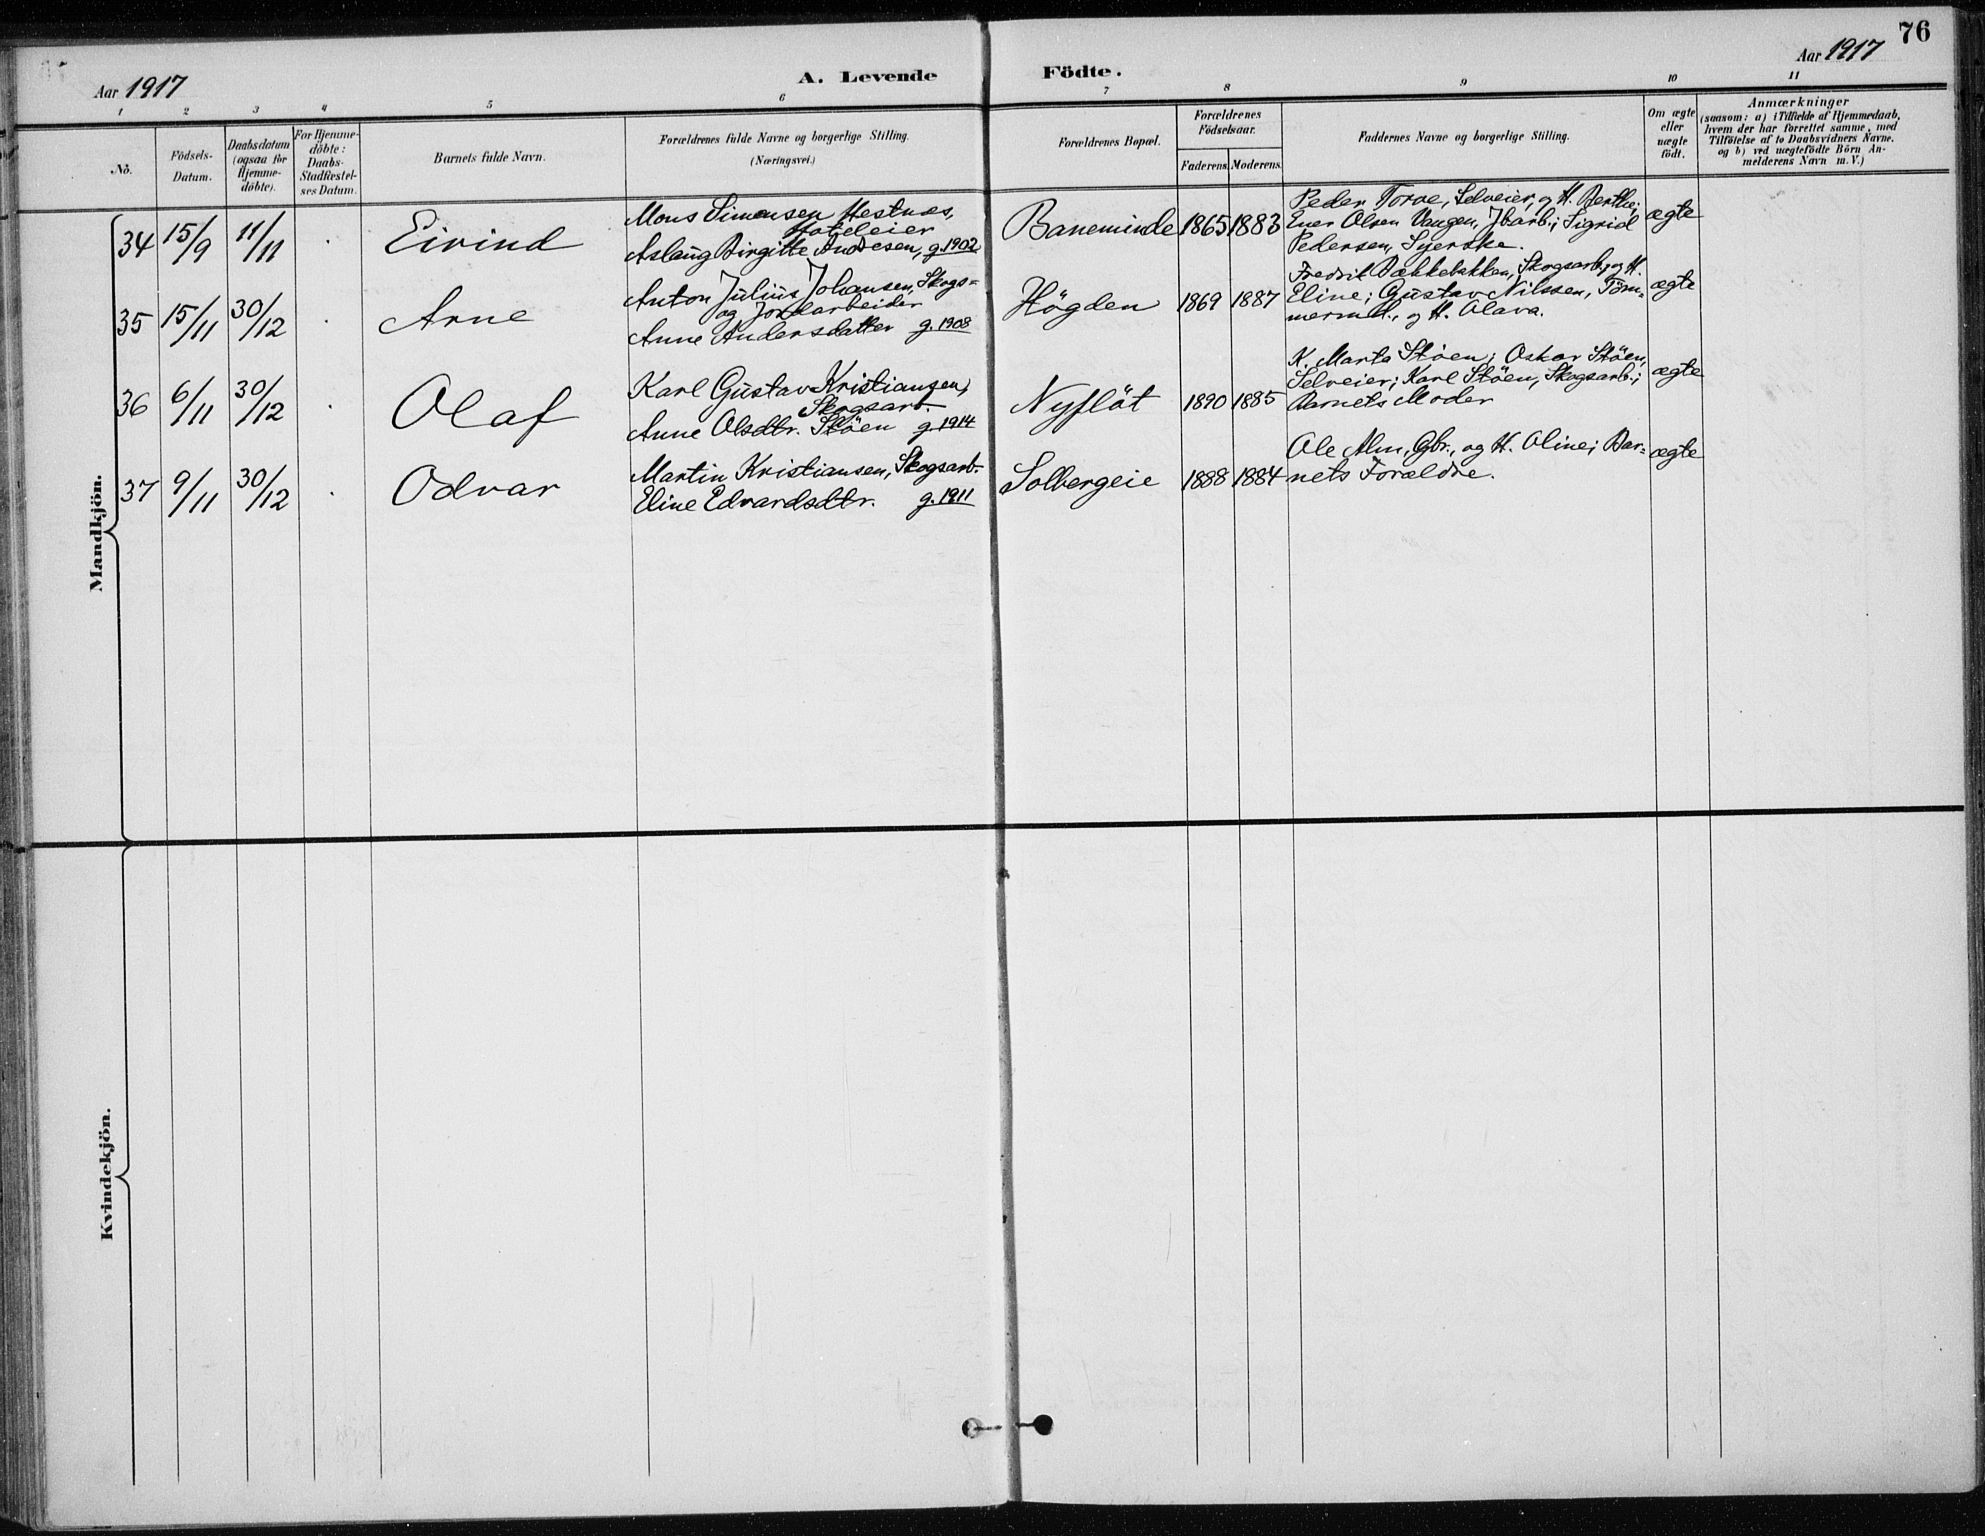 76
Aar 1917
A. Levende
Födte.
Aar 1917
1 2 3 4 5 6 7 8 9 10 11
No.
Födsels-
Datum.
Daabsdatum
(ogsaa for
Hjemme-
döbte).
For Hjemme-
döbte:
Daabs-
Stadfæstel-
ses Datum.
Barnets fulde Navn.
Forældrenes fulde Navne og borgerlige Stilling.
(Næringsvei.)
Forældrenes Bopæl.
Forældrenes
Födselsaar.
Faderens. Moderens.
Faddernes Navne og borgerlige Stilling.
Om ægte
eller
uægte
födt.
Anmærkninger
(saasom: a) i Tilfælde af Hjemmedaab,
hvem der har forrettet samme, med
Tilföielse af to Daabsvidners Navne.
og b) ved uægtefödte Börn An-
melderens Navn m. V.)
Mandkjön.
34 15/9 11/11 Eivind
Mons Simensen Hestnæs,
Hoteleier
Aslaug Birgitte Andresen, g. 1902
Baneminde 1865 1883
Peder Torve, Selveier, og H. Berthe;
Ener Olsen Vangen, Jbarb.; Sigrid
Pedersen, Syerske.
ægte
35 15/11 30/12 Arne
Anton Julius Johansen, Skogs-
og Jordarbeider
Anne Andersdatter g. 1908
Högden 1869 1887
Fredrik Bækkebakken, Skogsarb., og H.
Eline; Gustav Nilssen, Töm-
merm., og H. Olava.
ægte
36 6/11 30/12 Olaf
Karl Gustav Kristiansen,
Skogsarb.
Anne Olsdtr. Stöen g. 1914
Nyflöt 1890 1885
K. Marta Stöen; Oskar Stöen,
Selveier; Karl Stöen, Skogsarb.;
Barnets Moder
ægte
37 9/11 30/12 Odvar
Martin Kristiansen, Skogsarb.
Eline Edvardsdtr. g. 1911
Solbergeie 1888 1884
Ole Alm, Gbr., og H. Oline; Bar-
nets Forældre.
ægte
Kvindekjön.